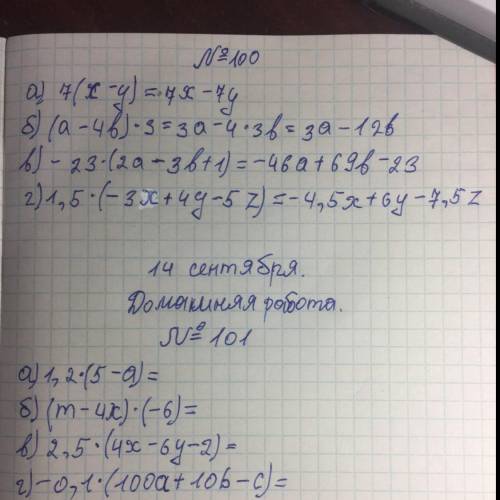 №100
а) 7(x-y)=7x-7y
б) (a-4b)·3=3a-4·3b=3a-12b
в) -23·(2a-3b+1)=-46a+69b-23
г) 1,5·(-3x+4y-5z)=-4,5x+6y-7,5z
14 сентября.
Домашняя работа.
№101
а) 1,2·(5-a)=
б) (m-4x)·(-6)=
в) 2,5·(4x-6y-2)=
г) -0,1·(100a+10b-c)=